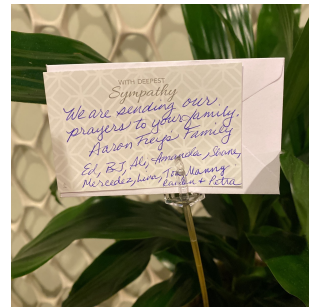 WITH DEEPEST
Sympathy
We are sending our
prayers to your family.
Aaron Freys Family
Ed, BJ, Ali, Amanda,
Mercedez, Tom, Manny
+ Petra